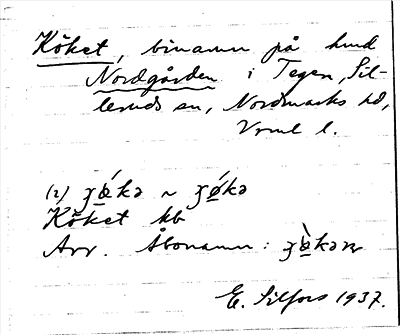 Köket, binamn på hmd
Nordgården i Tegen, Sil-
leruds sn, Nordmarks hd,
Vrml l.
(2) ʒö́kə ~ ʒǿkə
Köket kb
Arr. Åbonamn: ʒö̀kər
E. Silfors 1937.